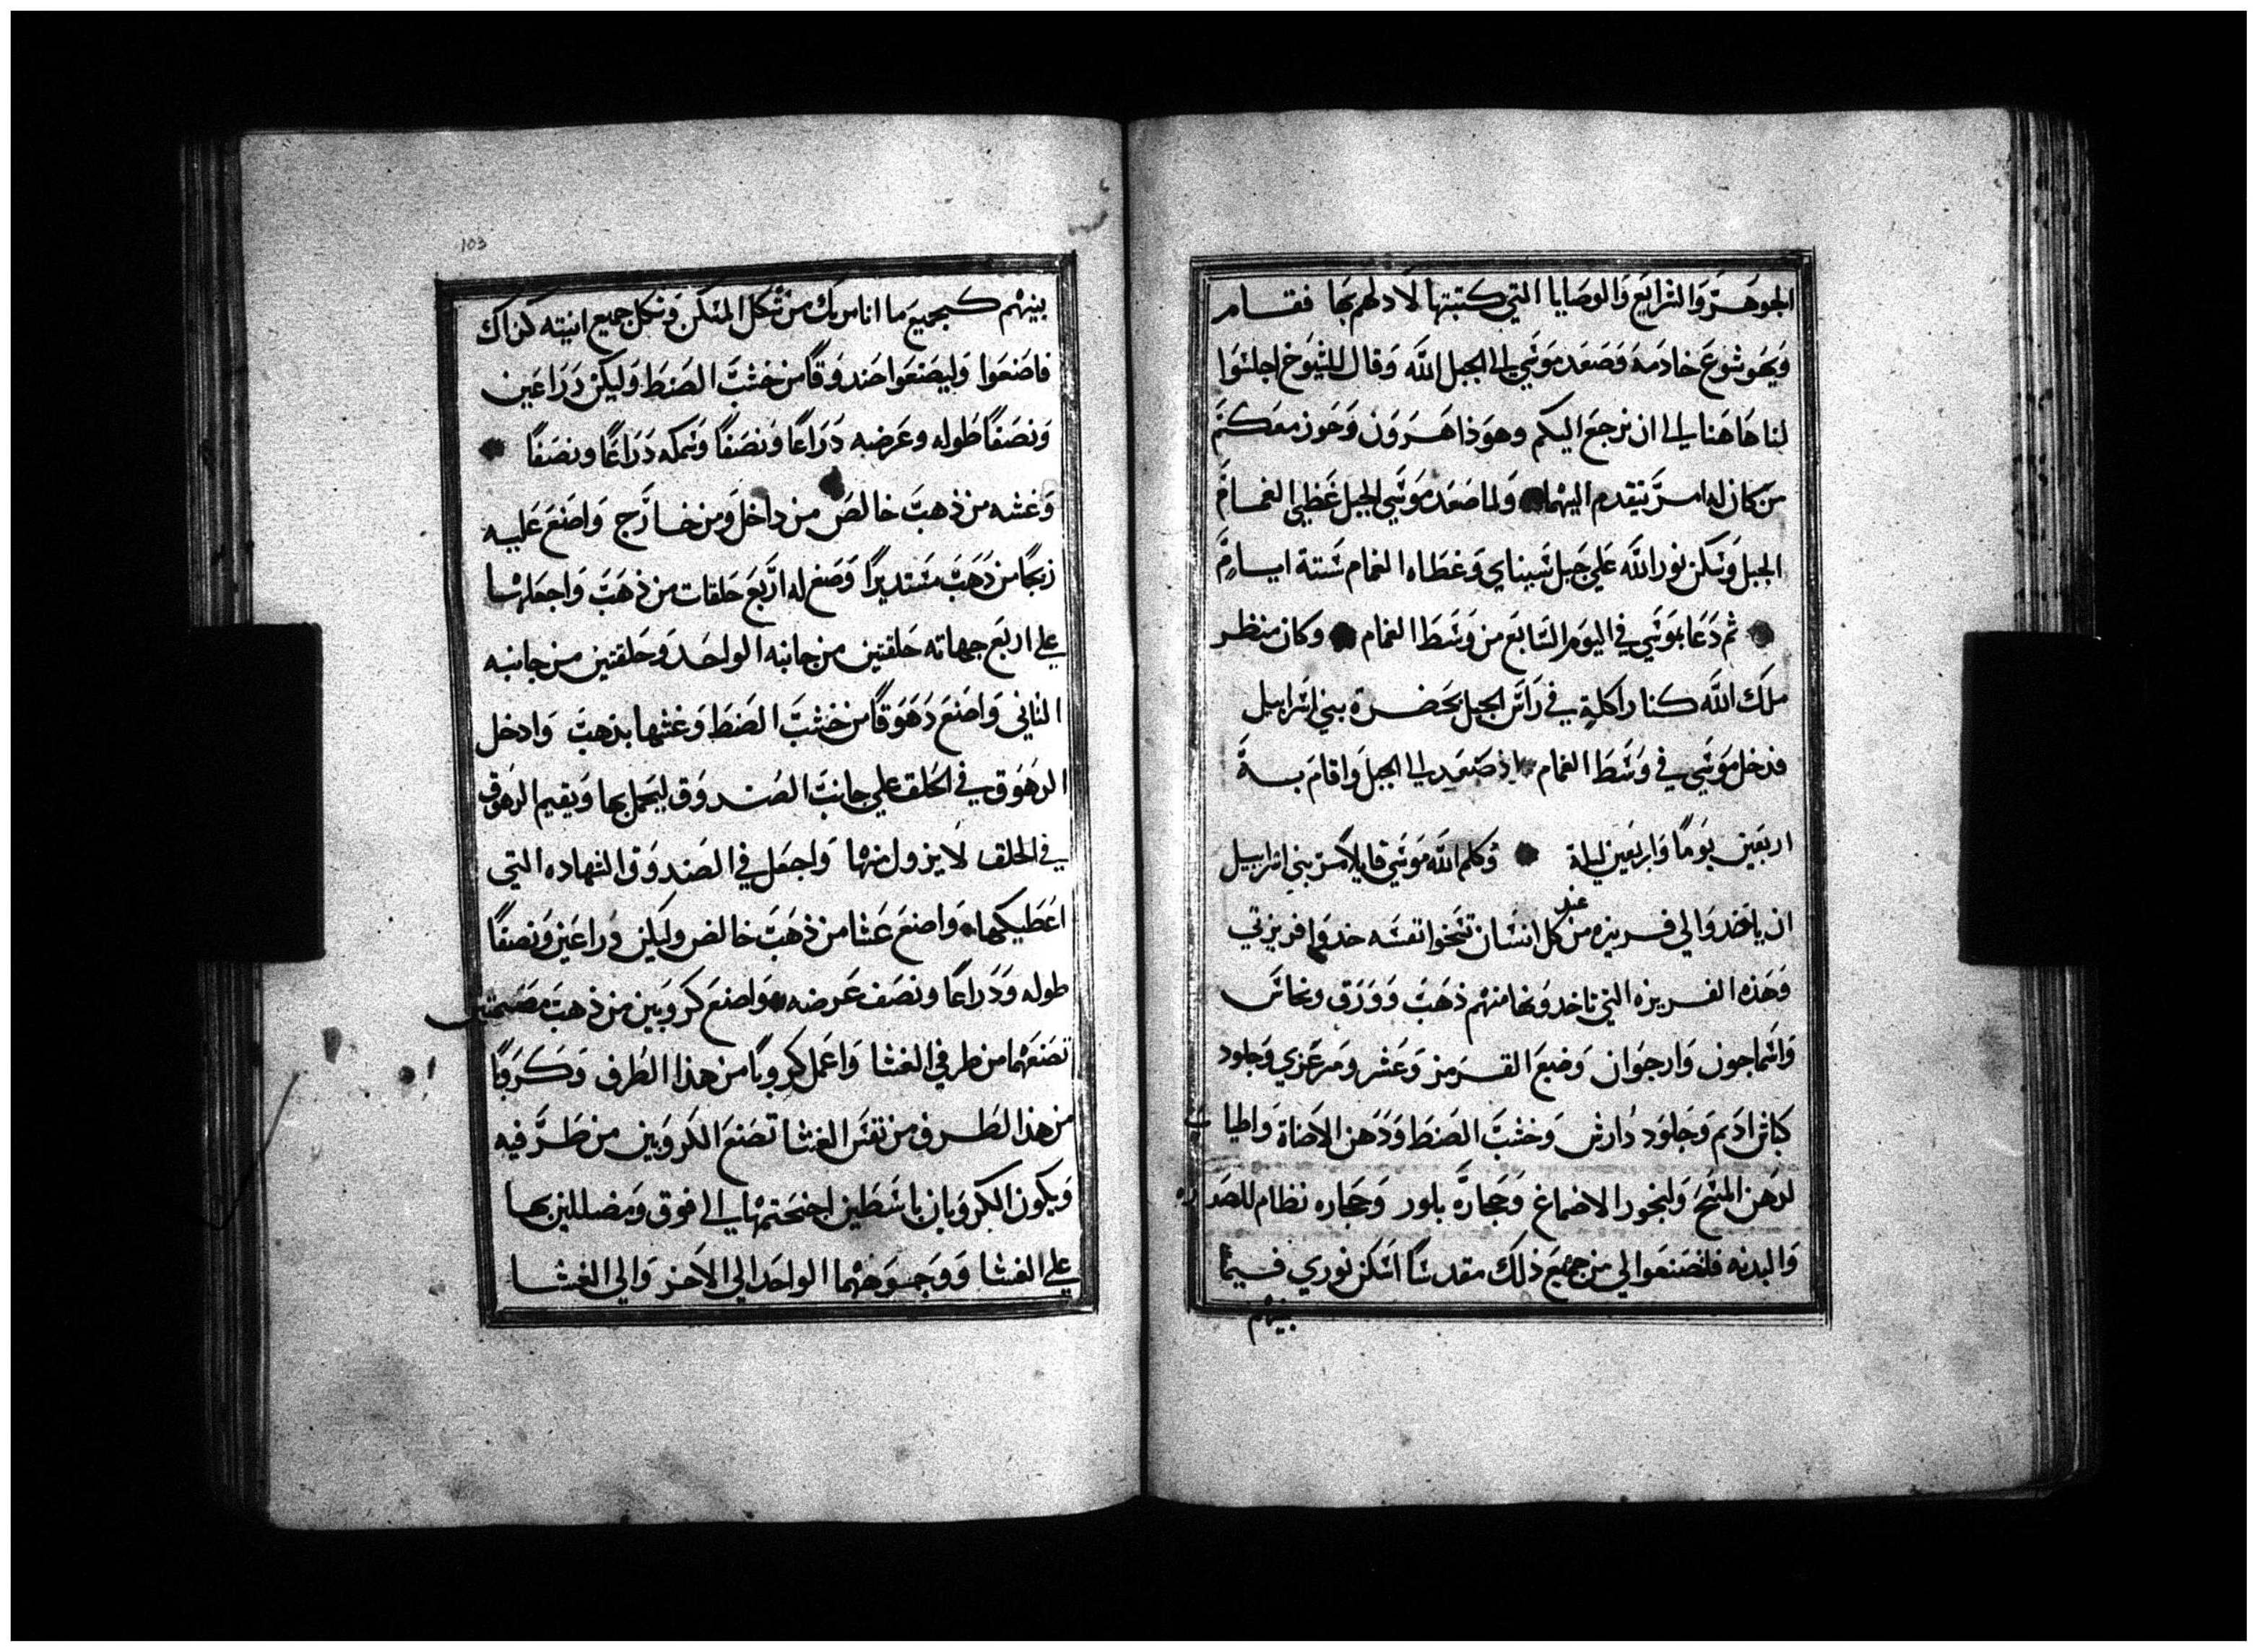 الجوهر والشرايع والوصايا التي كتبتها لادلهم بها فقام
ويهوشوع خادمه وصعد موسي الي الجبل الله وقال للشيوخ اجلسوا
لنا هاهنا الي ان نرجع اليكم وهوذا هرون وحور معكم
من كان له امر يتقدم اليهما ولما صعد موسي الجبل غطي الغمام
الجبل وسكن نور الله علي جبل سيناي وغطاه الغمام ستة ايام
ثم دعا بموسي في اليوم السابع من وسط الغمام وكان منظر
ملك الله كنار اكلة في راس الجبل بحضرة بني اسراييل
فدخل موسي في وسط الغمام اذ صعد الي الجبل واقام به
اربعين يوما واربعين ليلة وكلم الله موسي قايلا مر بني اسراييل
ان ياخدوا لي فريزه من عند كل انسان تسخوا نفسه خدوا فريزتي
وهذه الفريزه التي تاخدونها منهم ذهب وورق ونحاس
واسماجون وارجوان وصبع القرمز وعشر ومرعزي وجلود
كباش اديم وجلود دارش وخشب الصنط ودهن الاضاة واطياب
لدهن المسح ولبخور الاصماغ وحجارة بلور وحجاره نظام للصدره
والبدنه فلتصنعوا لي من جميع ذلك مقدسا اسكن نوري فيما
بينهم
103
بينهم كجميع ما انا مريك من شكل المسكن وشكل جميع انيته كذاك
فاصنعوا وليصنعوا صندوقا من خشب الصنط وليكن دراعين
ونصفا طوله وعرضه دراعا ونصفا وسمكه دراعا ونصفا
وغشه من ذهب خالص من داخل ومن خارج واصنع عليه
زيجا من دهب مستديرا وصغ له اربع حلقات من ذهب واجعلها
علي اربع جهاته حلقتين من جانبه الواحد وحلقتين من جانبه
الثاني واصنع دهوقا من خشب الصنط وغشها بذهب وادخل
الدهوق في الحلق علي جانب الصندوق ليحمل بها ويقيم الدهوق
في الحلق لا يزول منها واجعل في الصندوق الشهاده التي
اعطيكها واصنع غشا من ذهب خالص وليكن دراعين ونصفا
طوله ودراعا ونصف عرضه واصنع كروبين من ذهب مصمتين
تصنعهما من طرفي الغشا واعمل كروبا من هذا الطرف وكروبا
من هذا الطرف من نفس الغشا تصنع الكروبين من طرفيه
ويكون الكروبان باسطين اجنحتهما الي فوق ومضللين بها
علي الغشا ووجوههما الواحد الي الاخر والي الغشا